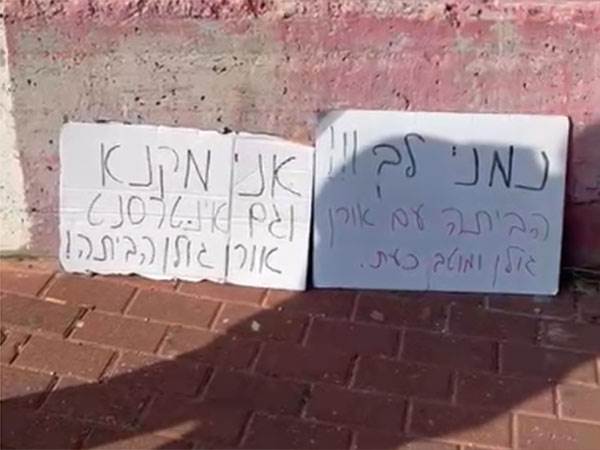 נמני לך !!!
הביתה עם אורן
גולן ומוטב כעת.
אני מקנא
וגם אינטרסנט
אורן גולן הביתה!